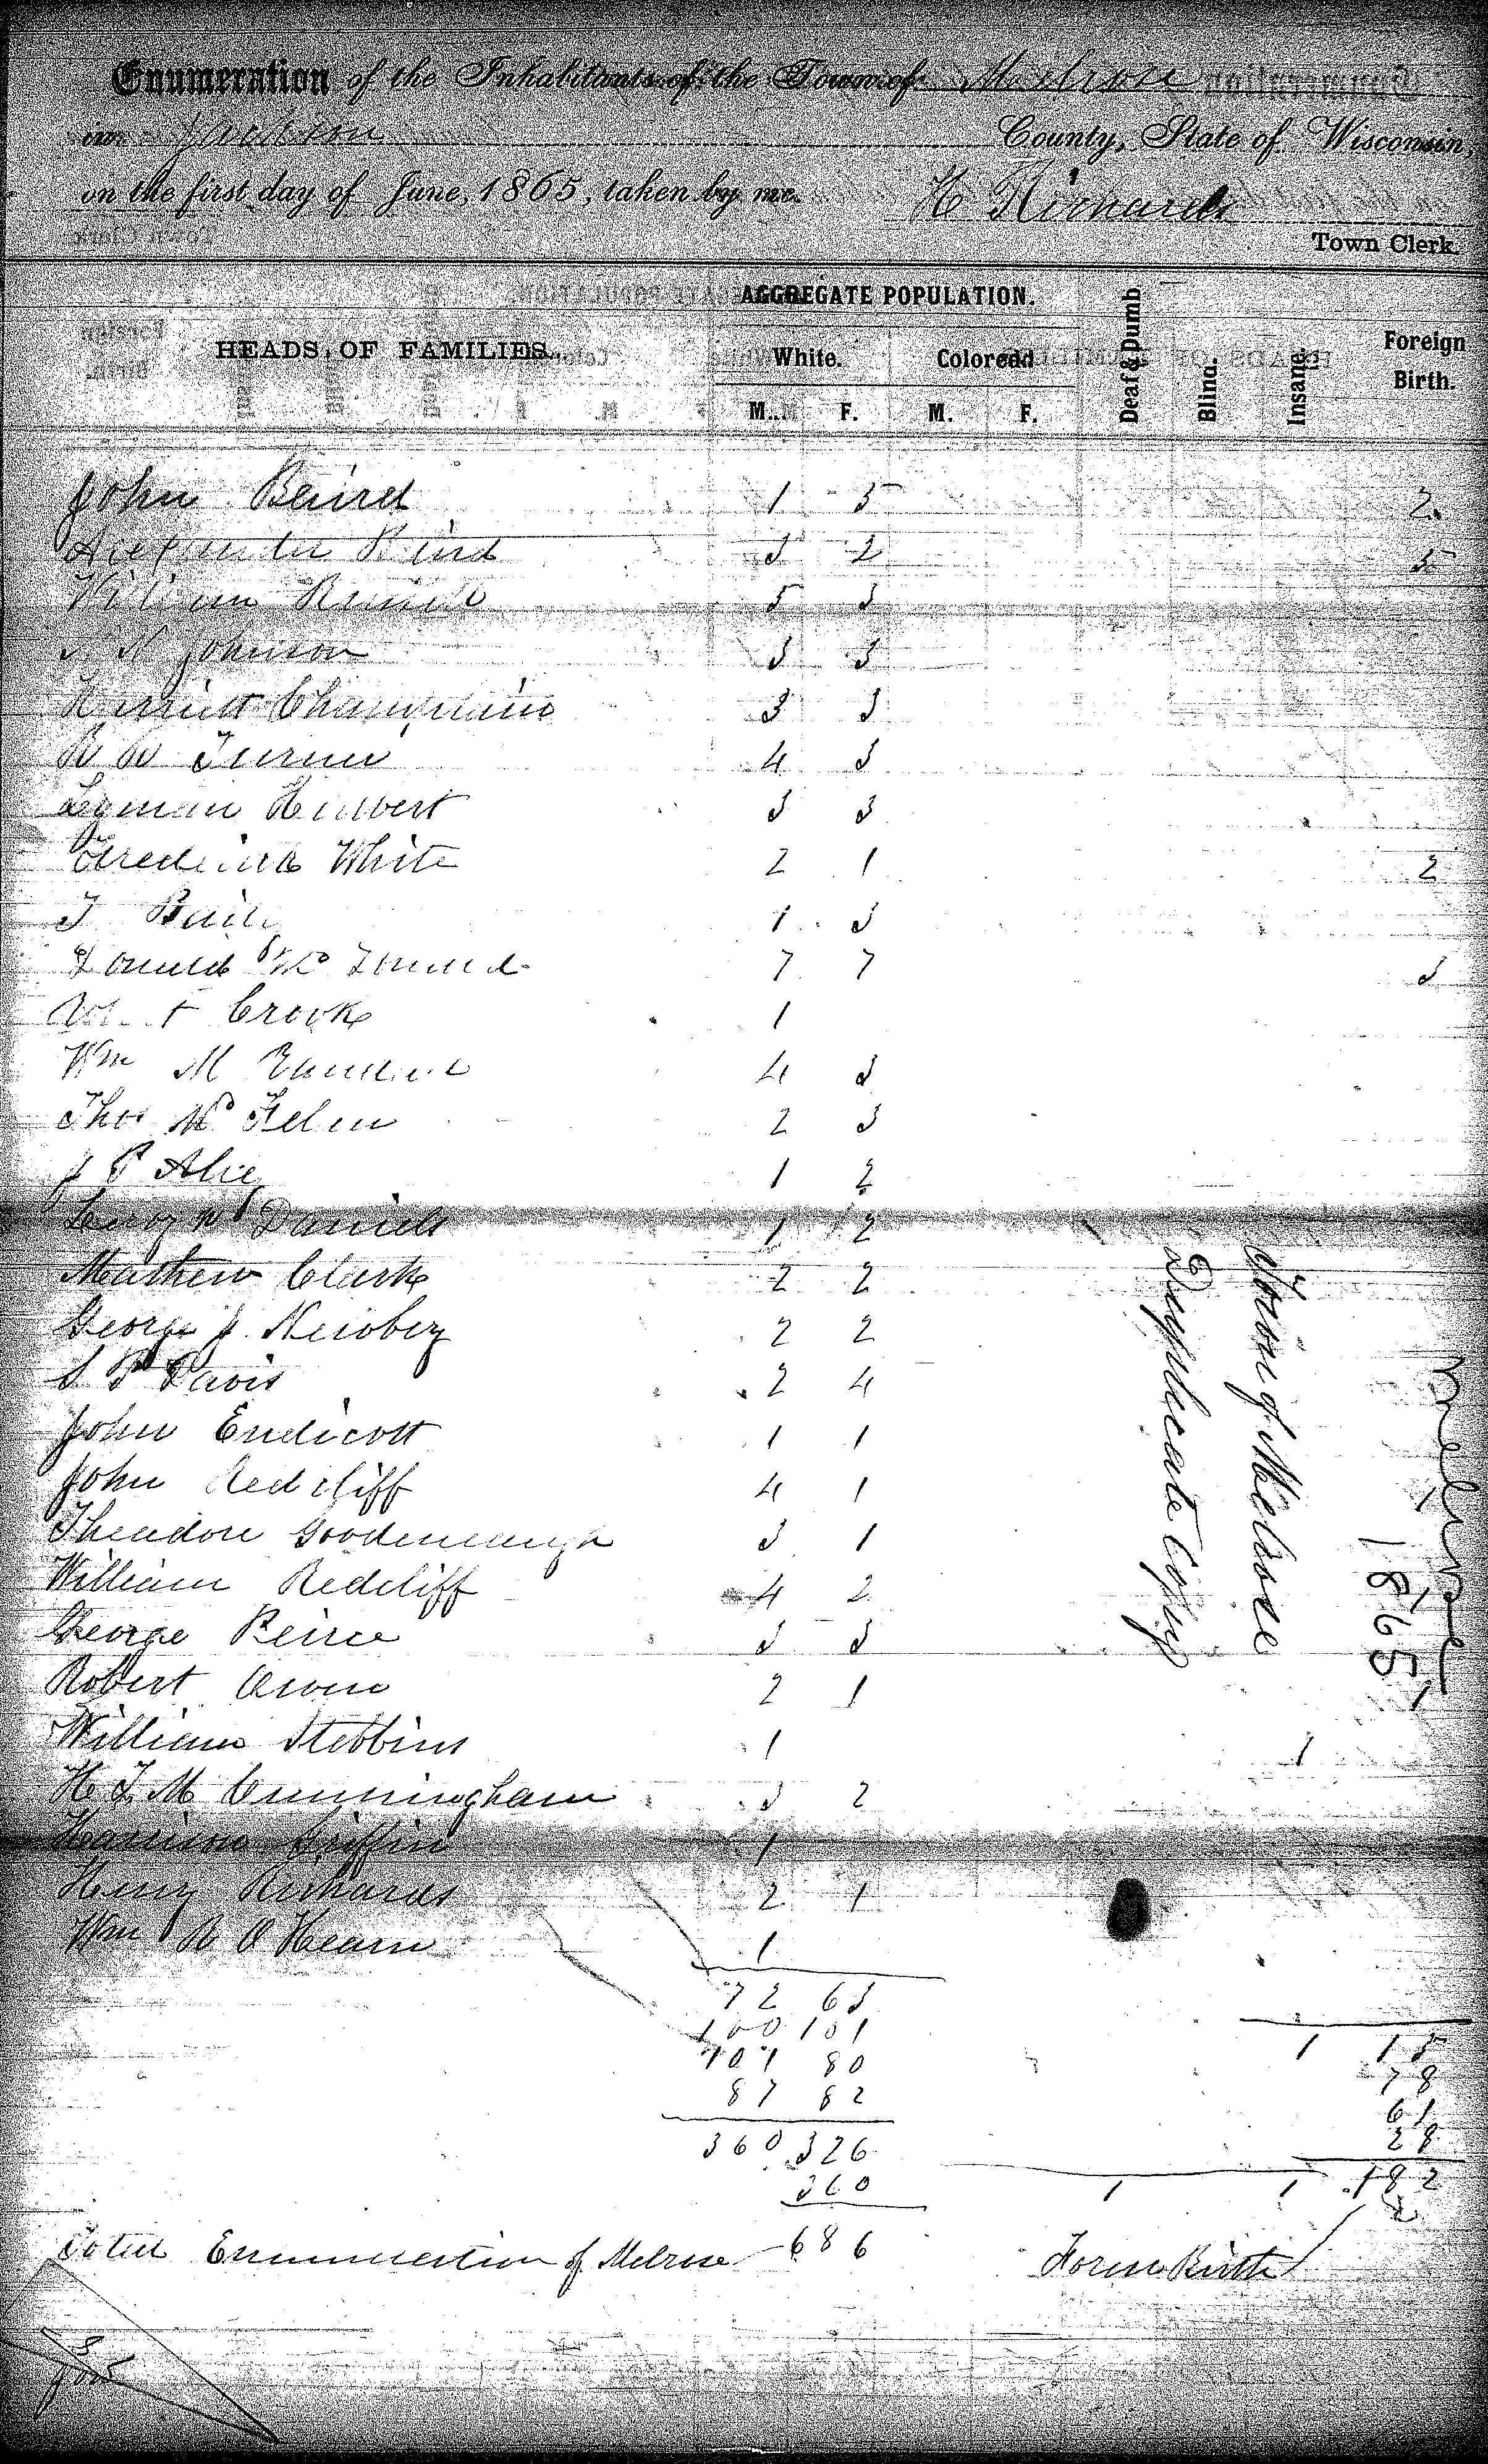 Enumeration of the Inhabitants of the Town of Melrose
in Jackson County, State of Wisconsin,
on the first day of June, 1865, taken by me. H Richards
Town Clerk.
AGGREGATE POPULATION.
HEADS OF FAMILIES. White. Colored Deaf & Dumb Blind. Insane. Foreign Birth.
M. F. M. F.
John Baird 1 5 2
Alexander Baird 3 2 5
William 5 3
Johnson 3 3
Champlain 3 3
Turner 4 3
Lyman 3 3
Frederick White 2 1 2
1 3
Donald 7 7 3
Crooks 1
Wm M 4 3
Thos 2 3
J P 1 2
Leroy Daniels 1 2
Mathew Clark 2 2
George J. Newbery 2 2
S P Davis 2 4
John Endicott 1 1
John Redcliff 4 1
Theodore Goodenough 3 1
William Redcliff 4 2
George Peirce 3 3
Robert Owen 2 1
William Stebbins 1 1
H L M Cunningham 3 2
Harrison Griffin 1
Henry Richards 2 1
Wm R O Hearn 1
72 63
100 101 1 15
101 80 78
87 82 61
360 326 28
360 1 1 182
Total Enumeration of Melrose 686 Foren Birth
Duplicate Copy
Town of Melrose
1865
Melrose